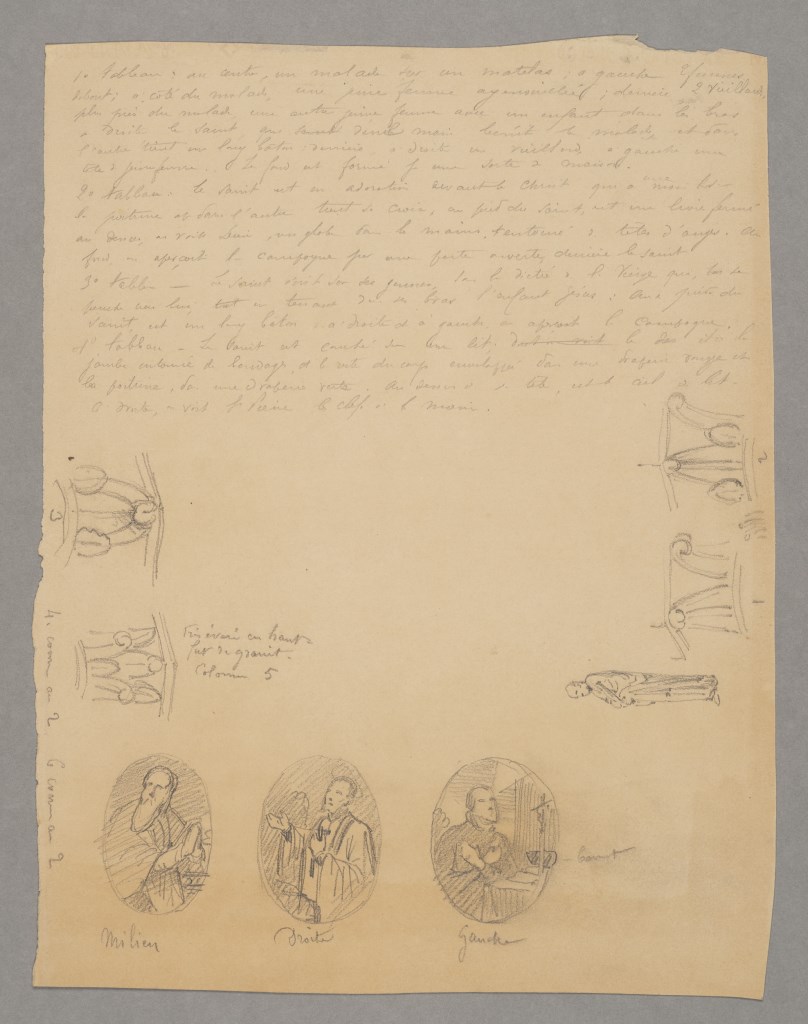 1o tableau : au centre, un malade sur un matelas ; à gauche 2 femmes
debout ; à côté du malade, une jeune femme agenouillée ; derrière 2 vieillards.
plus près du malade, une autre jeune femme avec un enfant dans les bras
à droite le Saint, qui d'une main bénit le malade, et dans
l'autre tient un long bâton. derrière, à droite un vieillard à gauche une
Le fond est formé p. une sorte de maison.
2o tableau. Le saint est en adoration devant le Christ qui a une main
la poitrine et dans l'autre tient sa Croix, au pied du Saint, est un livre fermé
au dessus, on voit Dieu, un globe dans la main, entouré de têtes d'anges. Au
fond, on aperçoit la campagne par une porte ouverte, derrière le saint
3o tableau — Le Saint est sur ses genoux, la Vierge qui, se
penche vers lui, tout en tenant dans ses bras l'enfant Jésus ; Aux pieds du
Saint, est un long bâton à droite et à gauche, on aperçoit la Campagne.
4o tableau — Le Saint est couché sur un lit. le bas de la
jambe entourée de bandage, et le reste du corps enveloppé dans une draperie rouge et
la poitrine, dans une draperie verte. Au dessus de sa tête, est le ciel de lit.
à droite, on voit St Pierre la clef à la main.
2
3
1
4. comme au 2
6 comme au 2
Très évasé en haut
fût de granit.
Colonne 5
Milieu
Droite
Gauche